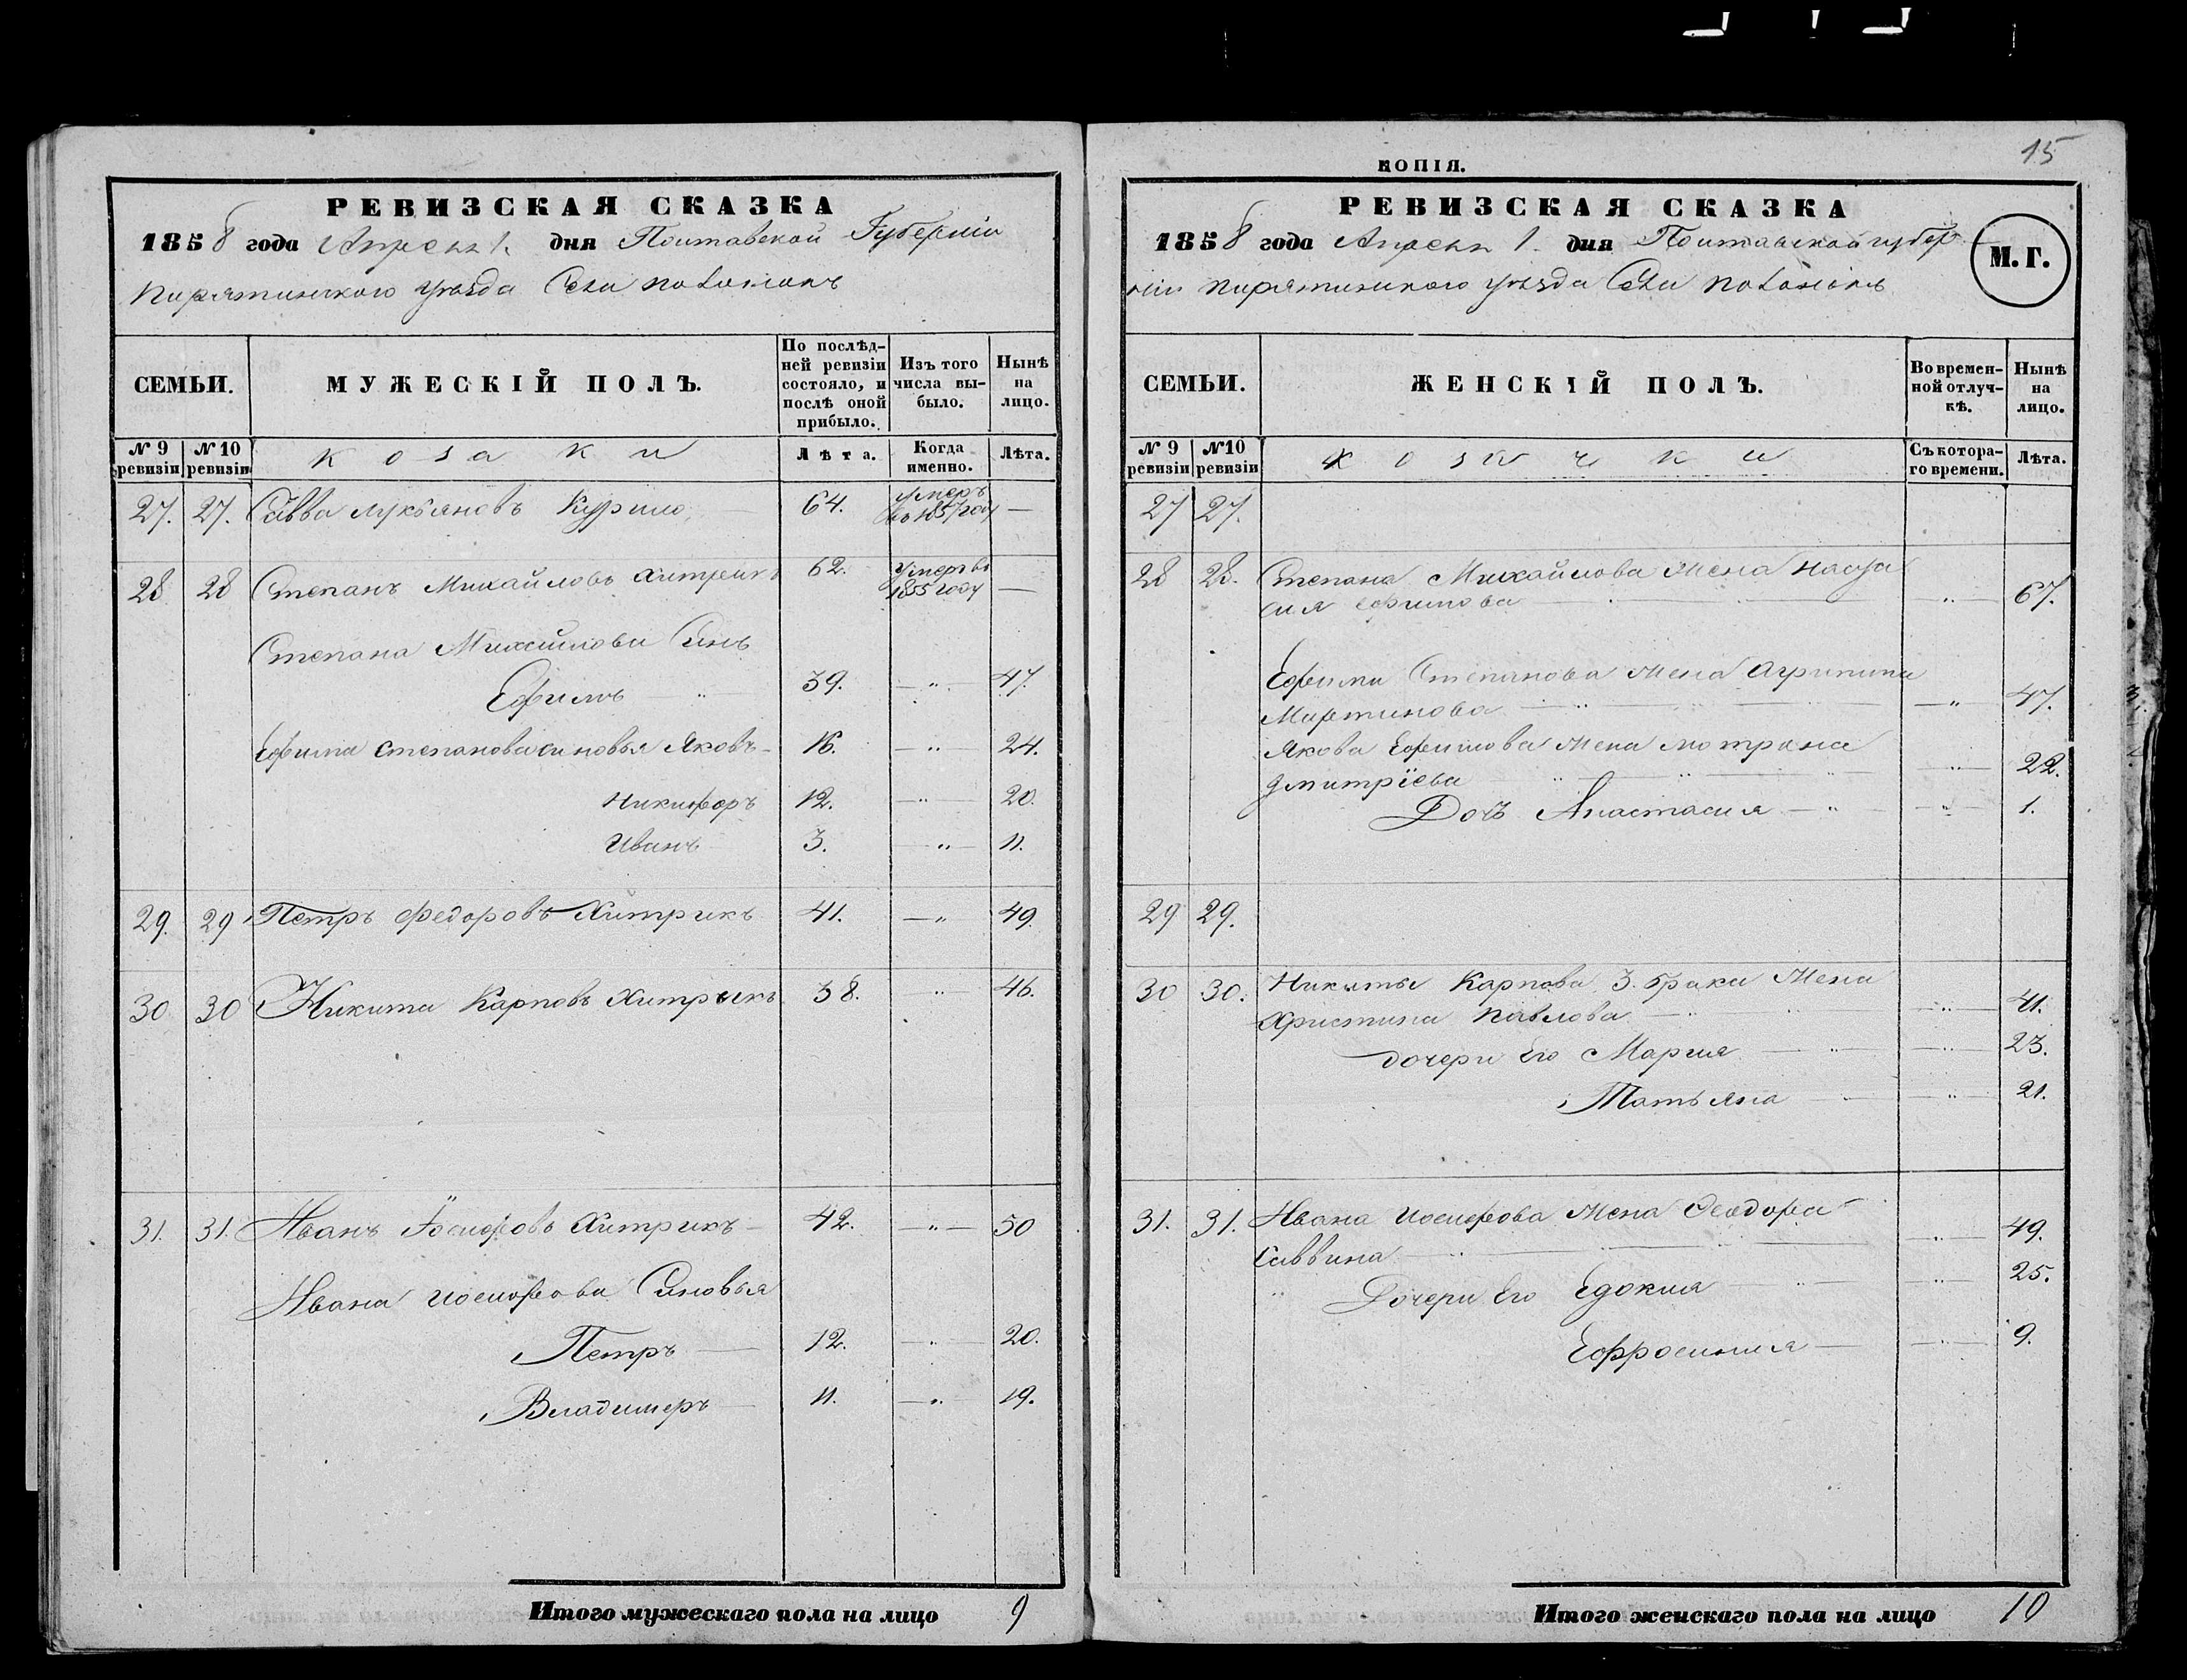 15
КОПІЯ.
РЕВИЗСКАЯ СКАЗКА
1858 года Апреля 1. дня Полтавской Губерніи
Пирятинского уѣзда Села
СЕМЬИ.
МУЖЕСКІЙ ПОЛЪ.
По послѣд-
ней ревизіи
состояло, и
послѣ оной
прибыло.
Изъ того
числа вы-
было.
Нынѣ
на
лицо.
№ 9 ревизіи
№ 10 ревизіи
козаки
Лѣта.
Когда именно.
Лѣта.
27. 27. Савва Лукьяновъ Курило 64. Умеръ
въ 1857 году —
28 28 Степанъ Михайловъ Хитрикъ 62. Умеръ въ
1855 году —
Степана Михайлова Синъ
Ефимъ " 39. — " — 47.
Ефима Степанова синовья Яковъ — 16. — " 24.
Никифоръ 12. — " — 20.
Иванъ 3. — " — 11.
29. 29 Петръ Федоровъ Хитрикъ 41. — " 49.
30 30 Никита Карповъ Хитрикъ 38. — " — 46.
31. 31. Иванъ Іосифовъ Хитрикъ — 42. — " — 50
Ивана Иосифова Синовья
Петръ — 12. — " — 20.
Владимеръ — 11. — " 19.
Итого мужескаго пола на лицо 9
РЕВИЗСКАЯ СКАЗКА
1858 года Апреля 1. дня Полтавской губер-
ніи Пирятинского уѣзда Села
М. Г.
СЕМЬИ.
ЖЕНСКІЙ ПОЛЪ.
Во времен-
ной отлуч-
кѣ.
Нынѣ
на
лицо.
№ 9 ревизіи
№ 10 ревизіи
козачки
Съ котора-
го времени.
Лѣта.
27 27.
28 28. Степана Михайлова Жена
Ефимова — " — 67.
Ефима Степанова Жена Агрипина
Мартинова — " — " 47.
Якова Ефимова Жена Мотрона
Дмитрїева " — " — 22.
Дочь Анастасия — " — " — 1.
29 29.
30 30. Никиты Карпова 3. брака Жена
Христина Павлова — " — " — 41.
дочери Его Мария — " — " — 23.
Татьяна — " — 21.
31. 31. Ивана Иосифова Жена Феодора
Саввина — " — " — 49.
" Дочери Его Едокия — " — " — 25.
Ефросиния — — " — 9.
Итого женскаго пола на лицо 10